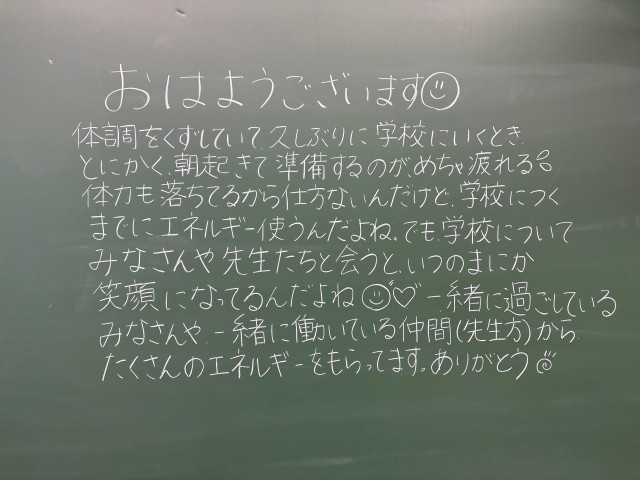 おはようございます☺
体調をくずしていて、久しぶりに学校にいくとき、
とにかく、朝起きて準備するのが、めちゃ疲れる
体力も落ちてるから仕方ないんだけど、学校につく
までにエネルギー使うんだよね。でも、学校について
みなさんや先生たちと会うと、いつのまにか
笑顔になってるんだよね☺♡一緒に過ごしている
みなさんや、一緒に働いている仲間(先生方)から、
たくさんのエネルギーをもらってます。ありがとう